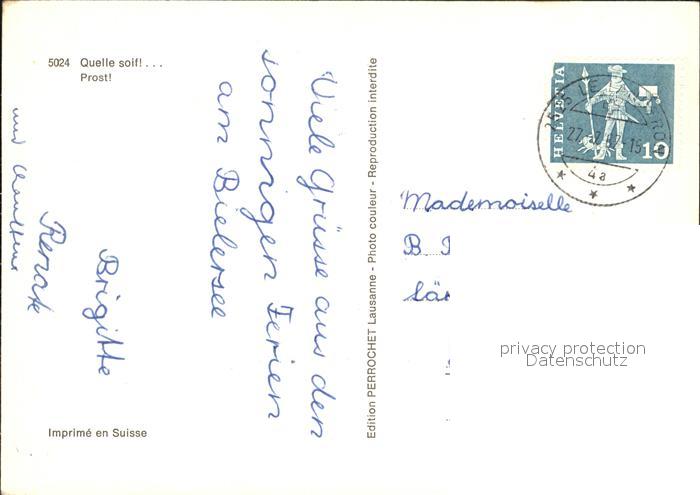 5024 Quelle soif!...
Prost!
Viele Grüsse aus den
sonnigen Ferien
am Bielersee
Brigitte
Renate
und
Edition PERROCHET Lausanne - Photo couleur - Reproduction interdite
Imprimé en Suisse
HELVETIA
10
2525 LE
4a
Mademoiselle
B
privacy protection
Datenschutz